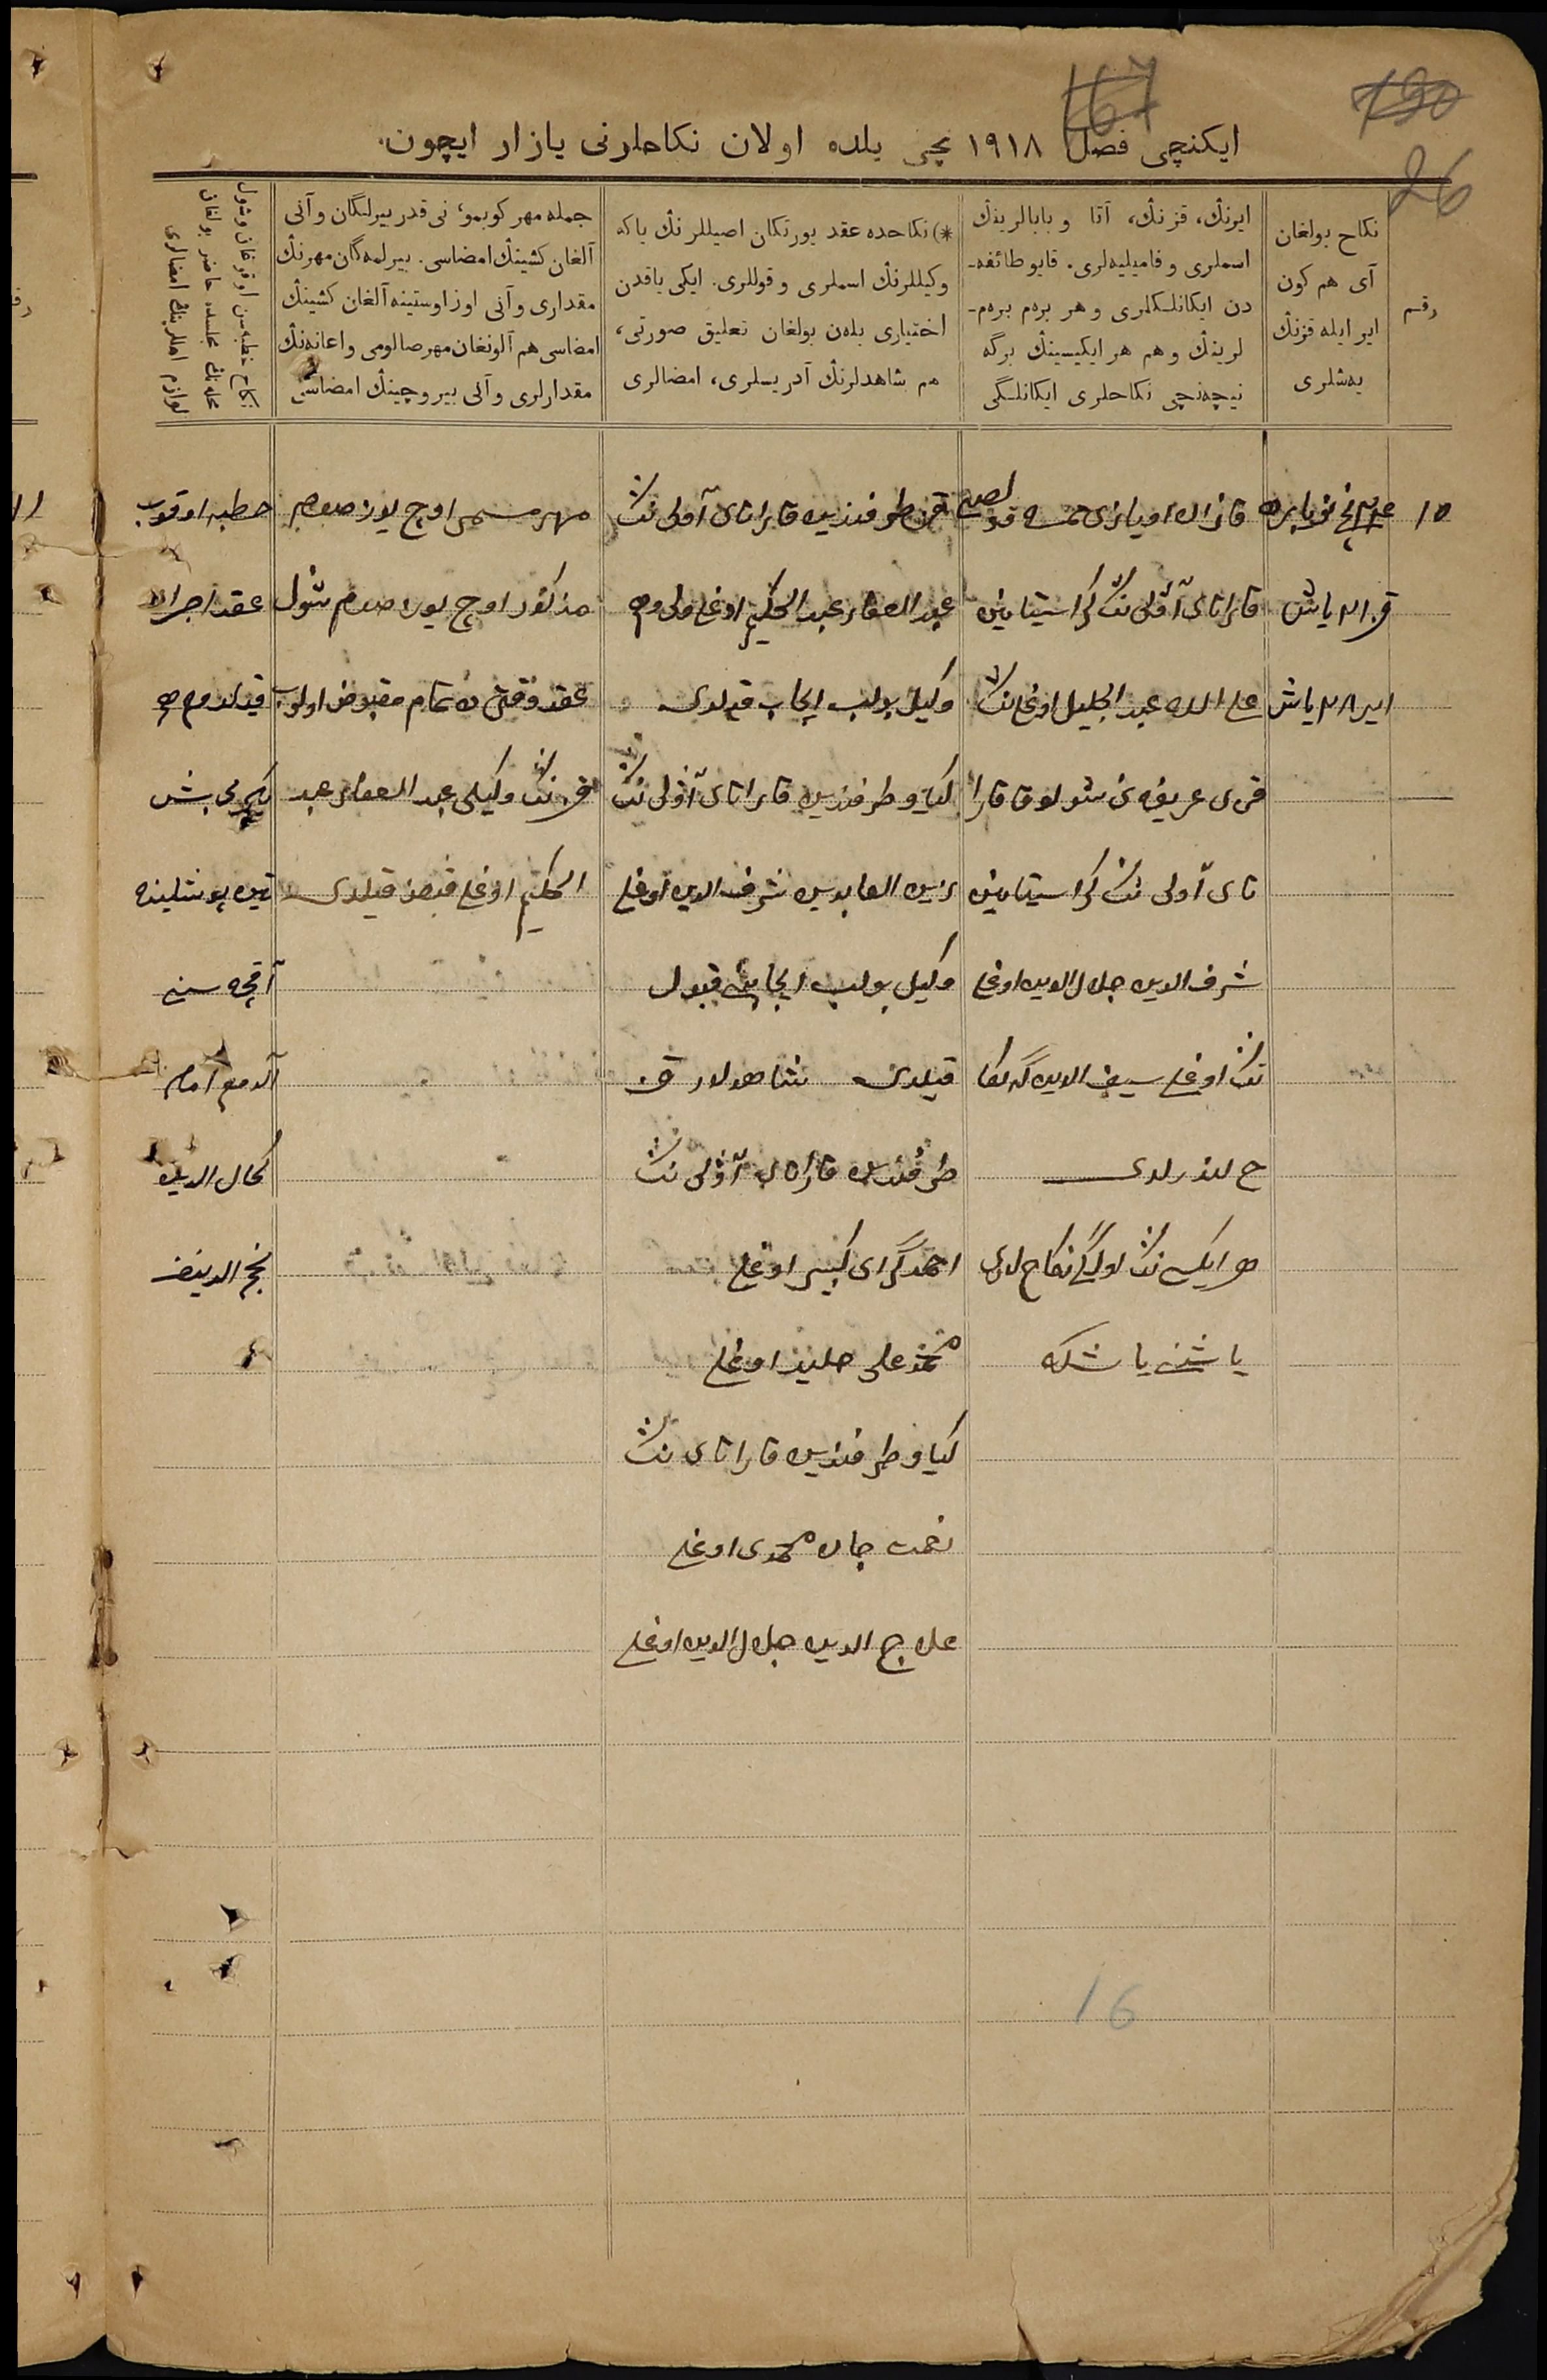 190
167
26
ایکنچی فصل ١٩١٨ نچی یلده اولان نکاحلرنی یازار ایچون.
رقم
نکاح بولغان
آی هم کون
ایر ایله قزنڭ
یه‌شلری
ایرنڭ، قزنڭ، آتا و بابالرینڭ
اسملری و فامیلیه‌لری. قایو طائفه‌-
دن ایکانلکلری و هر بره‌م بره‌م-
لرینڭ و هم هر ایکیسینڭ برگه
نیچه‌نچی نکاحلری ایکانلگی
*) نکاحده عقد یورتکان اصیللرنڭ یاکه
وکیللرنڭ اسملری و قوللری. ایکی یاقدن
اختیاری بله‌ن بولغان تعلیق صورتی،
هم شاهدلرنڭ آدریسلری، امضالری
جمله مهر کوبمو، نی قدر بیرلگان و آنی
آلغان کشینڭ امضاسی. بیرلمه‌گان مهرنڭ
مقداری و آنی اوز اوستینه آلغان کشینڭ
امضاسی هم آلونغان مهر صالومی و اعانه‌نڭ
مقدارلری و آنی بیروچینڭ امضاسی
نکاح خطبه‌سن اوقوغان و شول
محله‌نڭ مجلسده حاضر بولغان
لوازم اهللرینڭ امضالری
١٥
نویابرده
قز ٢١ یاش
ایر ٢٨ یاش
قازان اویازی
قاراتای آولی ننڭ کراستیانین
عبد الجلیل اوغلی ننڭ
قزی عریفه نی شولوق قارا
تای آولی ننڭ کراستیانین
شرف الدین جلال الدین اوغلی
ننڭ اوغلی سیف الدین گه نکا
ح لندرلدی
هر ایکسی ننڭ اولگی نکاح لاری
یاشی یاشکه
قز طرفندین قاراتای آولی ننڭ
عبد الغفار عبد الحکیم اوغلی ولی وهم
وکیل بولب ایجاب قیلدی
کیاو طرفندین قاراتای آولی ننڭ
زین العابدین شرف الدین اوغلی
وکیل بولب ایجابنی قبول
قیلدی شاهدلار قز
طرفندین قاراتای آولی ننڭ
احمدگرای کبیر اوغلی
محمد علی اوغلی
کیاو طرفندین قاراتای ننڭ
نعمت جان محمدی اوغلی
علاج الدین جلال الدین اوغلی
مهر مسمی اوچ یوز صوم
مذکور اوچ یوز صوم شول
عقد وقتی ده تمام مقبوض اولوب
قز ننڭ وکیلی عبد الغفار عبد
الحکیم اوغلی قبض قیلدی
خطبه اوقوب
عقد اجرا
قیلدم هم
یگرمی بش
تین پوشلینه
آقچه سنی
آلدم امام
کمال الدین
نجم الدینف
16